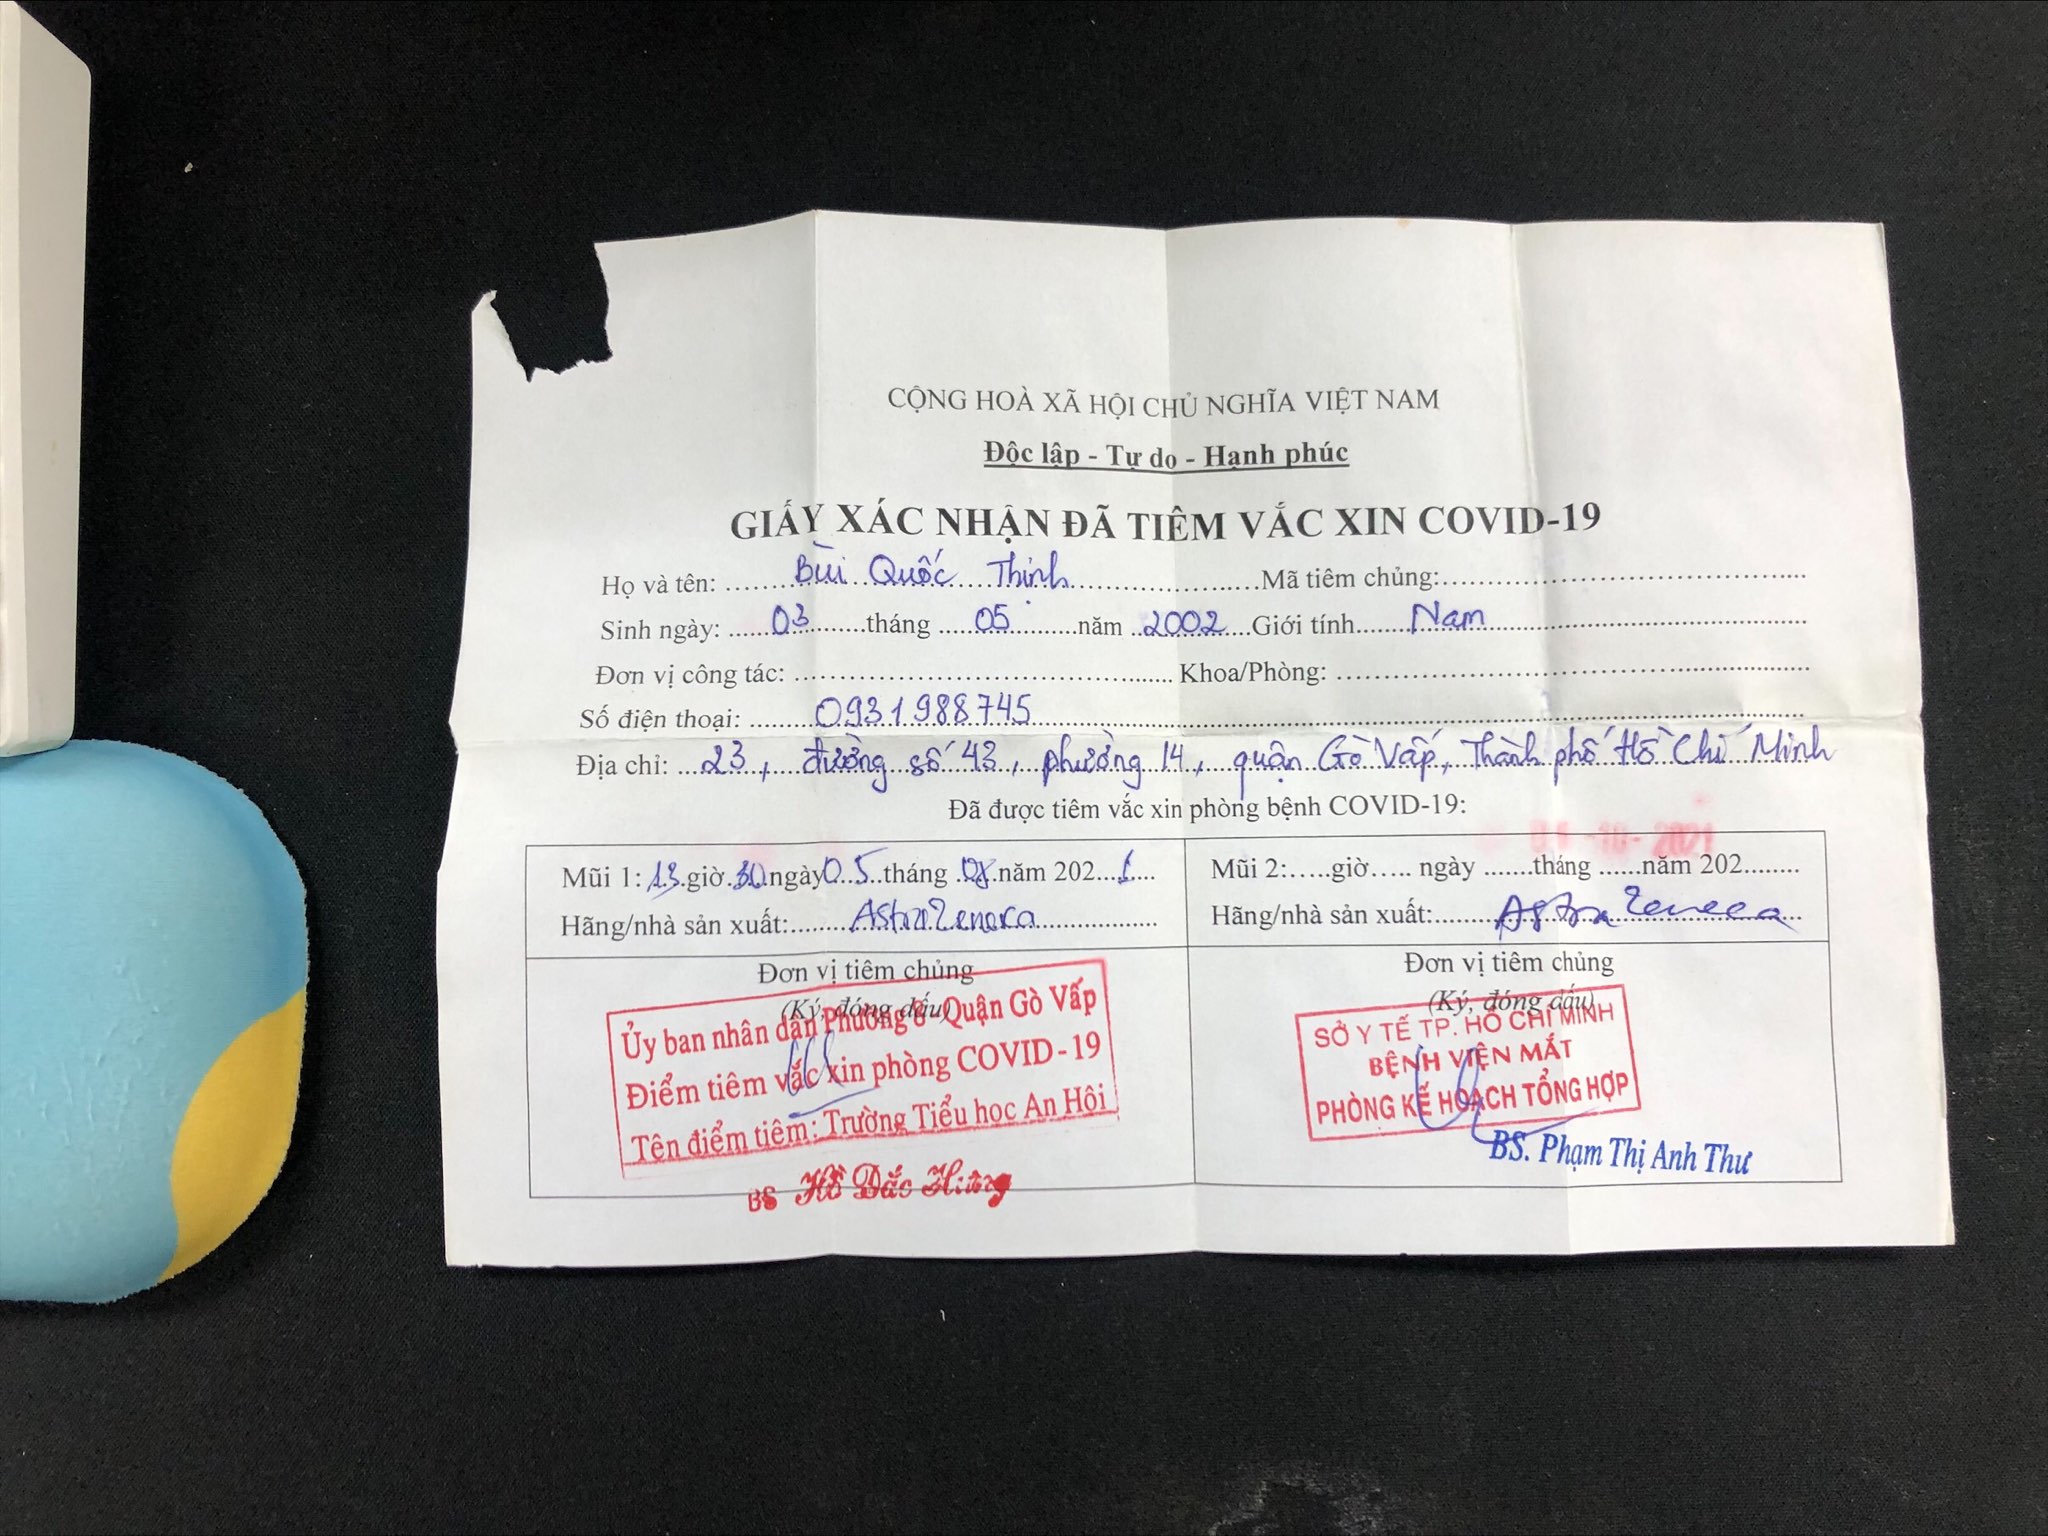 CỘNG HOÀ XÃ HỘI CHỦ NGHĨA VIỆT NAM
Độc lập - Tự do - Hạnh phúc
GIẤY XÁC NHẬN ĐÃ TIÊM VẮC XIN COVID-19
Họ và tên: Bùi Quốc Thịnh Mã tiêm chủng:
Sinh ngày: 03 tháng 05 năm 2002 Giới tính Nam
Đơn vị công tác: Khoa/Phòng:
Số điện thoại: 0931988745
Địa chỉ: 23, đường số 43, phường 14, quận Gò Vấp, Thành phố Hồ Chí Minh
Đã được tiêm vắc xin phòng bệnh COVID-19:
-10-2021
Mũi 1: 13 giờ 30 ngày 05 tháng 08 năm 2021
Hãng/nhà sản xuất: AstraZeneca
Mũi 2: giờ ngày tháng năm 202
Hãng/nhà sản xuất: AstraZeneca
Đơn vị tiêm chủng
(Ký, đóng dấu)
Ủy ban nhân dân Phường 8 - Quận Gò Vấp
Điểm tiêm vắc xin phòng COVID-19
Tên điểm tiêm: Trường Tiểu học An Hội
BS Hồ Đắc Hương
Đơn vị tiêm chủng
(Ký, đóng dấu)
SỞ Y TẾ TP. HỒ CHÍ MINH
BỆNH VIỆN MẮT
PHÒNG KẾ HOẠCH TỔNG HỢP
BS. Phạm Thị Anh Thư